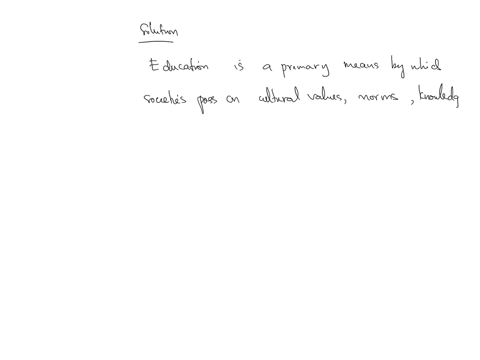 Solution
Education is a primary means by which
societies pass on cultural values, norms, knowledg